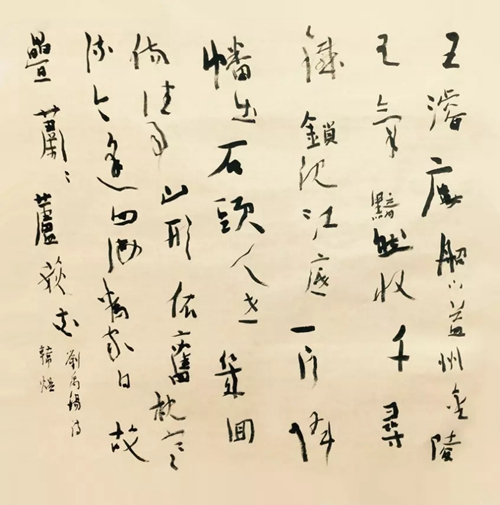 王濬楼船下益州金陵
王氣黯然收千尋
鐵鎖沉江底一片降
幡出石頭人世幾回
傷往事山形依舊枕寒
流今逢四海為家日故
壘蕭々蘆荻秋
劉禹錫詩
韓